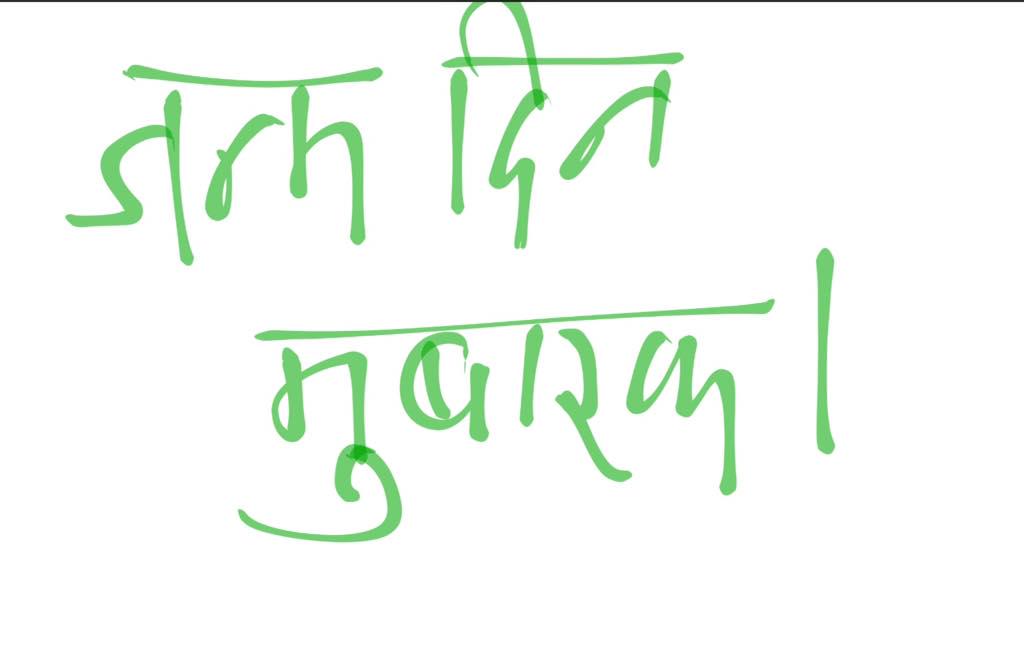 जन्म दिन
मुबारक।